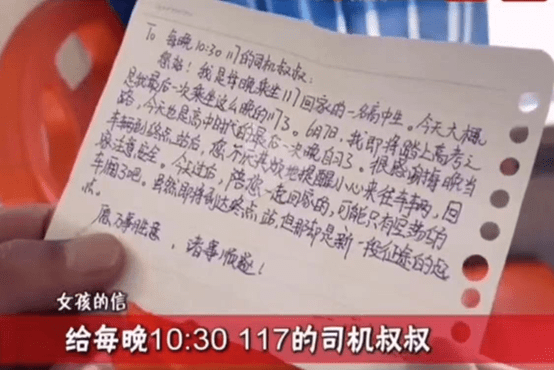 To 每晚10:30 117的司机叔叔:
您好!我是每晚乘坐117回家的一名高中生。今天大概
是我最后一次乘坐这么晚的117了。6月7日,我即将踏上高考之
路,今天也是高中时代的最后一次晚自习了。很感谢每晚当
车辆到终点站后,您不厌其烦地提醒小心来往车辆,回
家注意安全。今天过后,陪您一起回家的,可能只有空荡的
车厢了吧。虽然即将到达终点站,但那却是新一段征途的起
点。
愿万事胜意,诸事顺遂!
女孩的信
给每晚10:30 117的司机叔叔